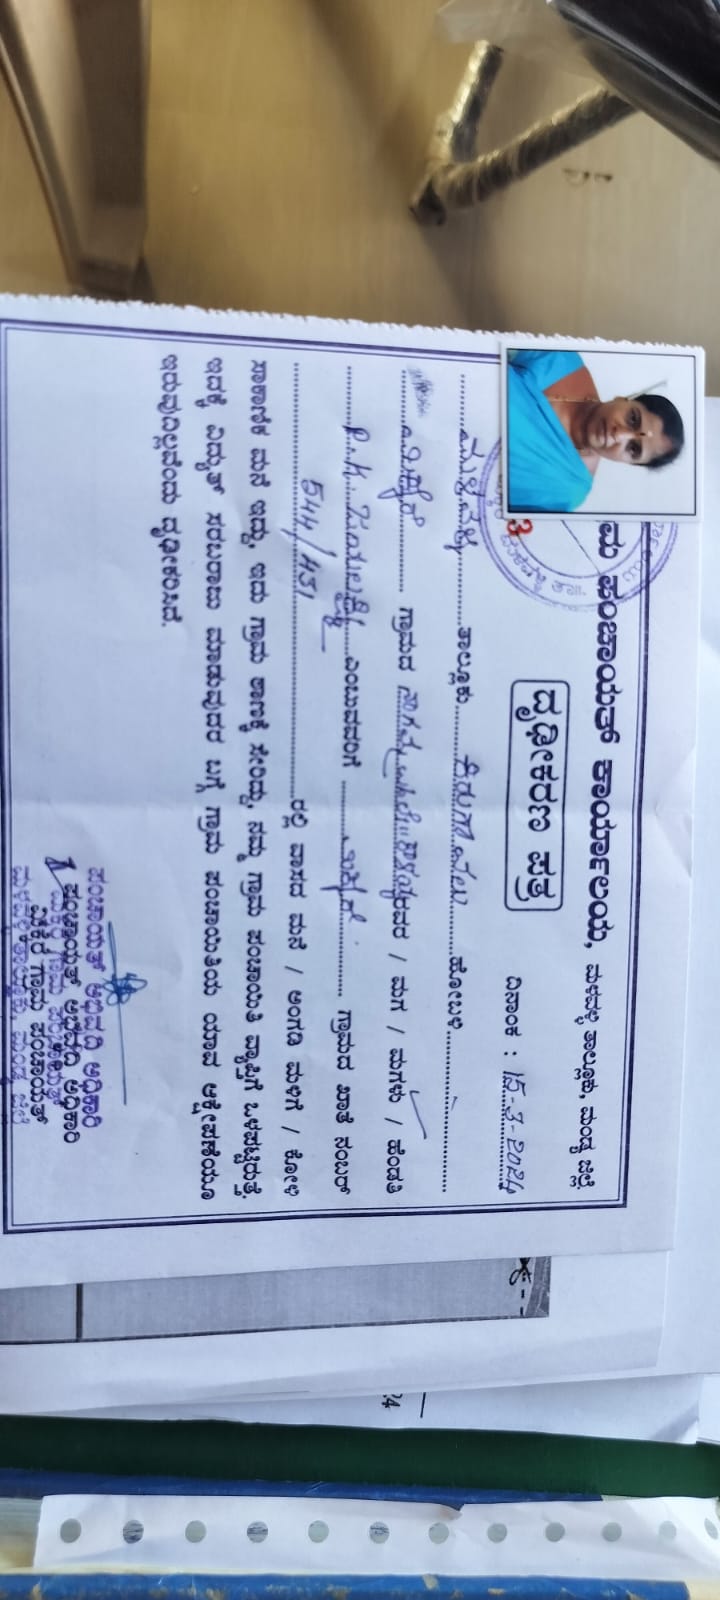 ಮ ಪಂಚಾಯತ್ ಕಾರ್ಯಾಲಯ, ಮಳವಳ್ಳಿ ತಾಲ್ಲೂಕು, ಮಂಡ್ಯ ಜಿಲ್ಲೆ.
ದೃಢೀಕರಣ ಪತ್ರ
ದಿನಾಂಕ : 15-3-2024
ಮಳವಳ್ಳಿ ತಾಲ್ಲೂಕು ಕಿರುಗಾವಲು ಹೋಬಳಿ
ಗ್ರಾಮದ ರವರ / ಮಗ / ಮಗಳು / ಹೆಂಡತಿ
P.K. ಜಯಲಕ್ಷ್ಮಿ ಎಂಬುವವರಿಗೆ ಗ್ರಾಮದ ಖಾತೆ ನಂಬರ್
544/431 ರಲ್ಲಿ ವಾಸದ ಮನೆ / ಅಂಗಡಿ ಮಳಿಗೆ / ಕೋಳಿ
ಸಾಕಾಣಿಕೆ ಮನೆ ಇದ್ದು, ಇದು ಗ್ರಾಮ ಠಾಣಕ್ಕೆ ಸೇರಿದ್ದು, ನಮ್ಮ ಗ್ರಾಮ ಪಂಚಾಯಿತಿ ವ್ಯಾಪ್ತಿಗೆ ಒಳಪಟ್ಟಿರುತ್ತೆ.
ಇದಕ್ಕೆ ವಿದ್ಯುತ್ ಸರಬರಾಜು ಮಾಡುವುದರ ಬಗ್ಗೆ ಗ್ರಾಮ ಪಂಚಾಯಿತಿಯ ಯಾವ ಆಕ್ಷೇಪಣೆಯೂ
ಇರುವುದಿಲ್ಲವೆಂದು ದೃಢೀಕರಿಸಿದೆ.
ಪಂಚಾಯತ್ ಅಭಿವೃದ್ಧಿ ಅಧಿಕಾರಿ
ಪಂಚಾಯತ್ ಅಭಿವೃದ್ಧಿ ಅಧಿಕಾರಿ
ಗ್ರಾಮ ಪಂಚಾಯತ್